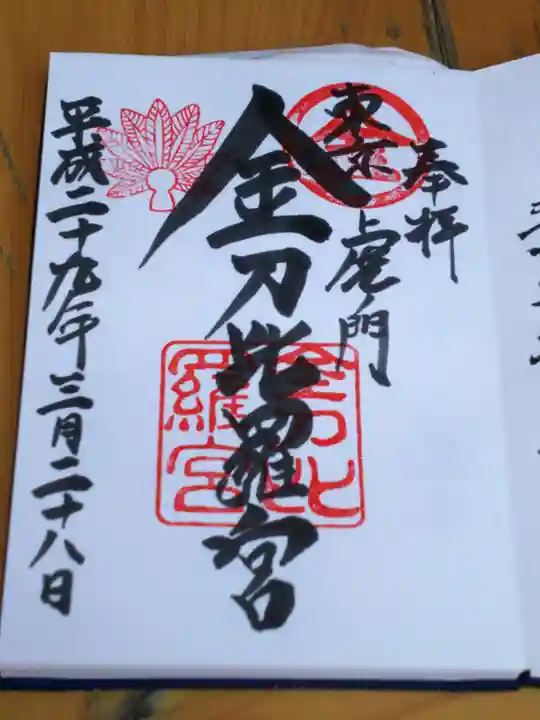 奉拝
東京虎門
金刀比羅宮
金刀比
羅宮
平成二十九年三月二十八日